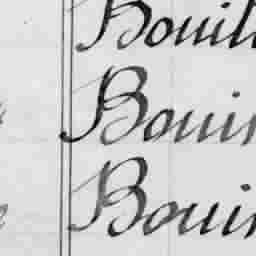 Bouil
Bouin
Bouin